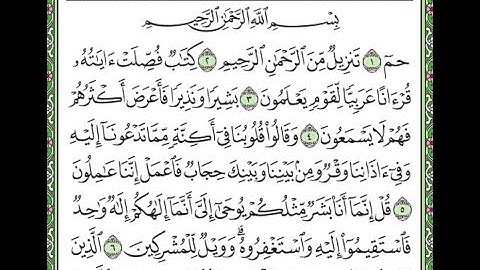 بِسْمِ اللَّهِ الرَّحْمَٰنِ الرَّحِيمِ
حمٓ ١ تَنزِيلٌ مِّنَ الرَّحْمَٰنِ الرَّحِيمِ ٢ كِتَٰبٌ فُصِّلَتْ ءَايَٰتُهُۥ
قُرْءَانًا عَرَبِيًّا لِّقَوْمٍ يَعْلَمُونَ ٣ بَشِيرًا وَنَذِيرًا فَأَعْرَضَ أَكْثَرُهُمْ
فَهُمْ لَا يَسْمَعُونَ ٤ وَقَالُوا۟ قُلُوبُنَا فِىٓ أَكِنَّةٍ مِّمَّا تَدْعُونَآ إِلَيْهِ
وَفِىٓ ءَاذَانِنَا وَقْرٌ وَمِنۢ بَيْنِنَا وَبَيْنِكَ حِجَابٌ فَٱعْمَلْ إِنَّنَا عَٰمِلُونَ
٥ قُلْ إِنَّمَآ أَنَا۠ بَشَرٌ مِّثْلُكُمْ يُوحَىٰٓ إِلَىَّ أَنَّمَآ إِلَٰهُكُمْ إِلَٰهٌ وَٰحِدٌ
فَٱسْتَقِيمُوٓا۟ إِلَيْهِ وَٱسْتَغْفِرُوهُ ۗ وَوَيْلٌ لِّلْمُشْرِكِينَ ٦ ٱلَّذِينَ